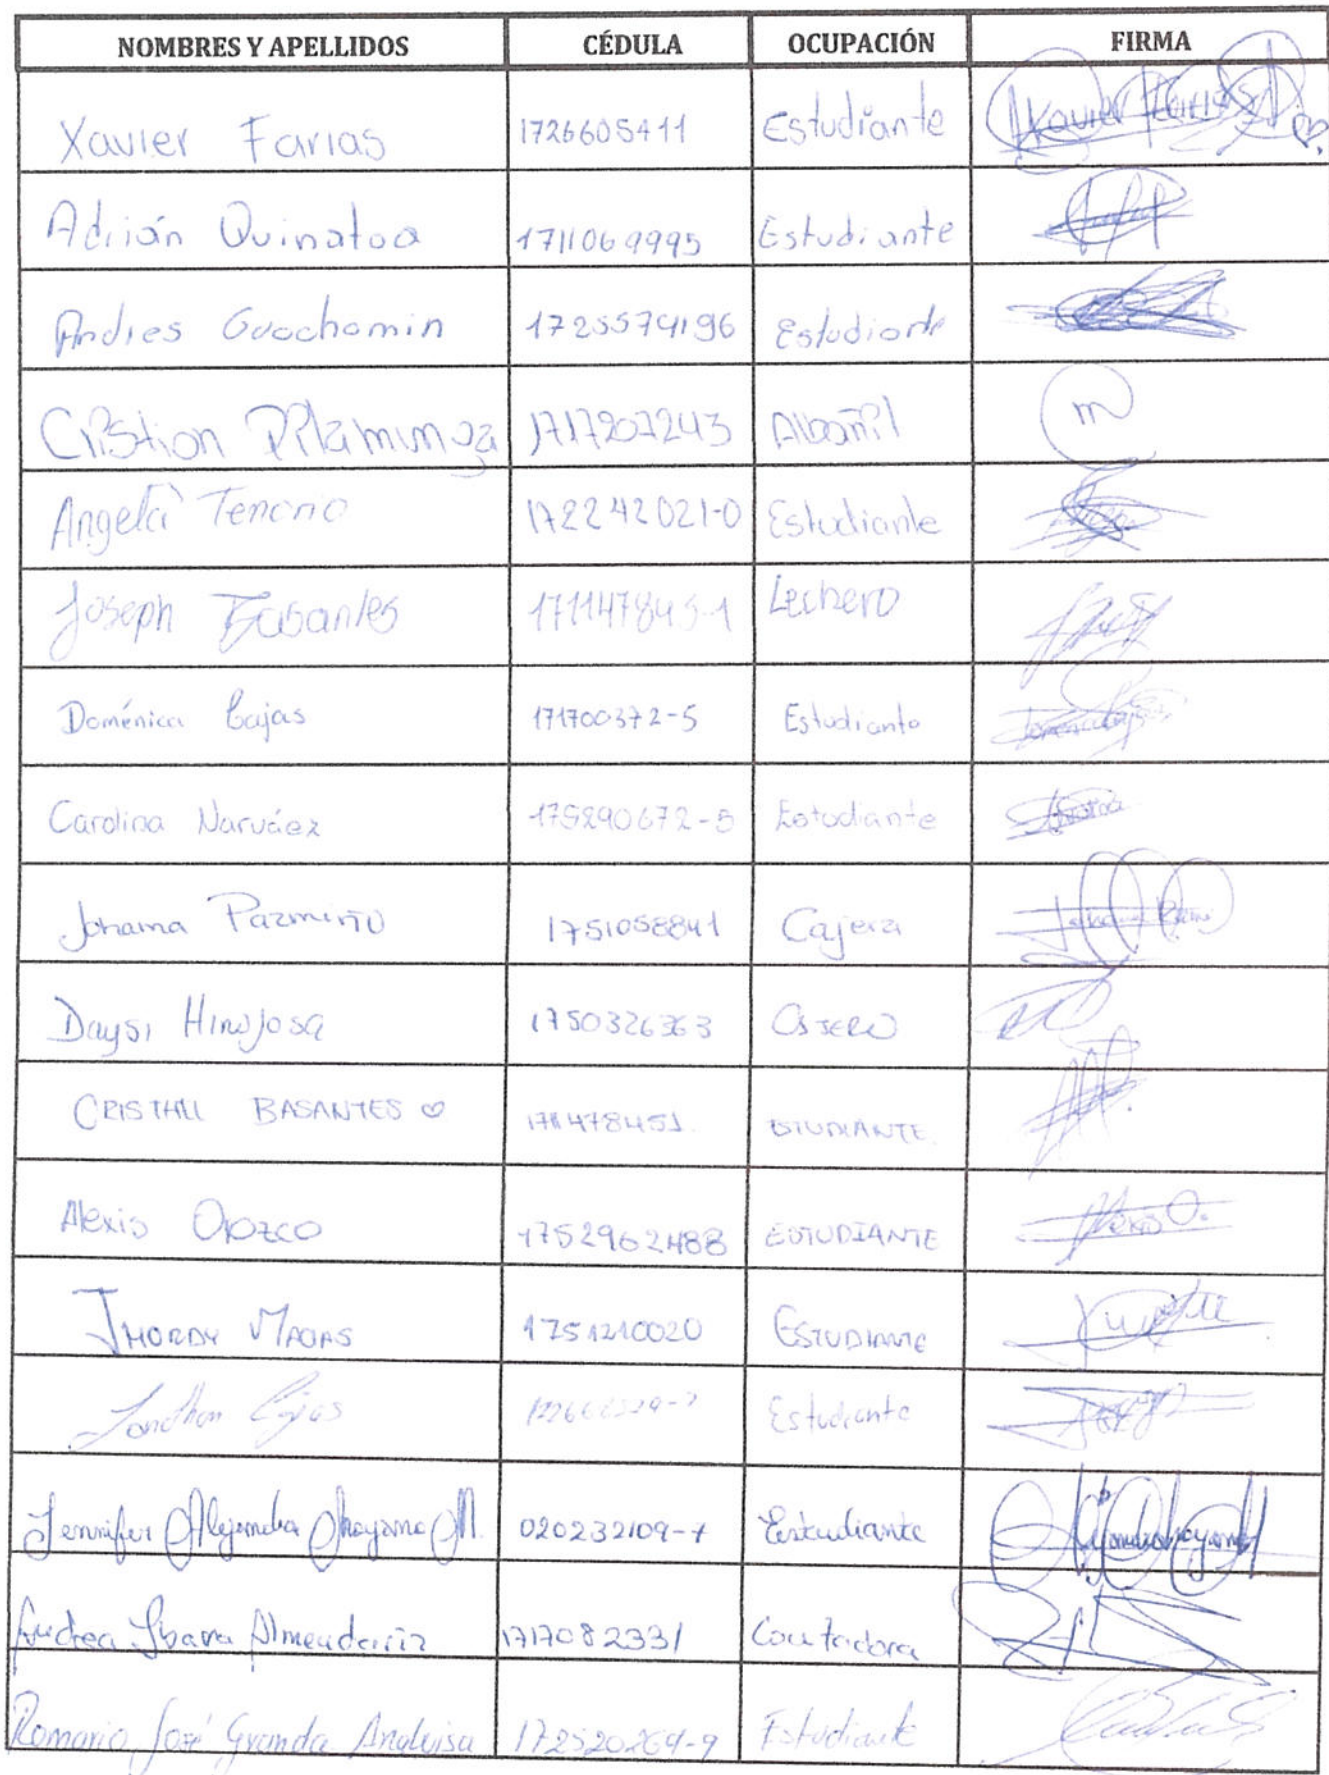 NOMBRES Y APELLIDOS CÉDULA OCUPACIÓN FIRMA
Xavier Farias 1726605411 Estudiante Xavier Farias
Adrián Quinatoa 1711069995 Estudiante
Andres Guachamin 1725574196 Estudiante
Cristian Pilamunga 1717207243 Albañil m
Angela Tenorio 172242021-0 Estudiante
Joseph Basantes 171147845-1 Lechero
Doménica Cajas 171700372-5 Estudiante
Carolina Narváez 175290672-5 Estudiante
Johama Pazmiño 1751058841 Cajera
Daysi Hinojosa 1750326363 CAJERO
CRISTHELL BASANTES 1711478451. ESTUDIANTE.
Alexis Orozco 1752962488 ESTUDIANTE Alexis O.
JHORDY 1751210020 ESTUDIANTE
Jonathan Cajas Estudiante
Jennifer Alejandra M. 020232109-7 Estudiante
Andrea Ibarra Almendariz 1717082331 Contadora
Romario José Granda Analuisa 172520264-9 Estudiante